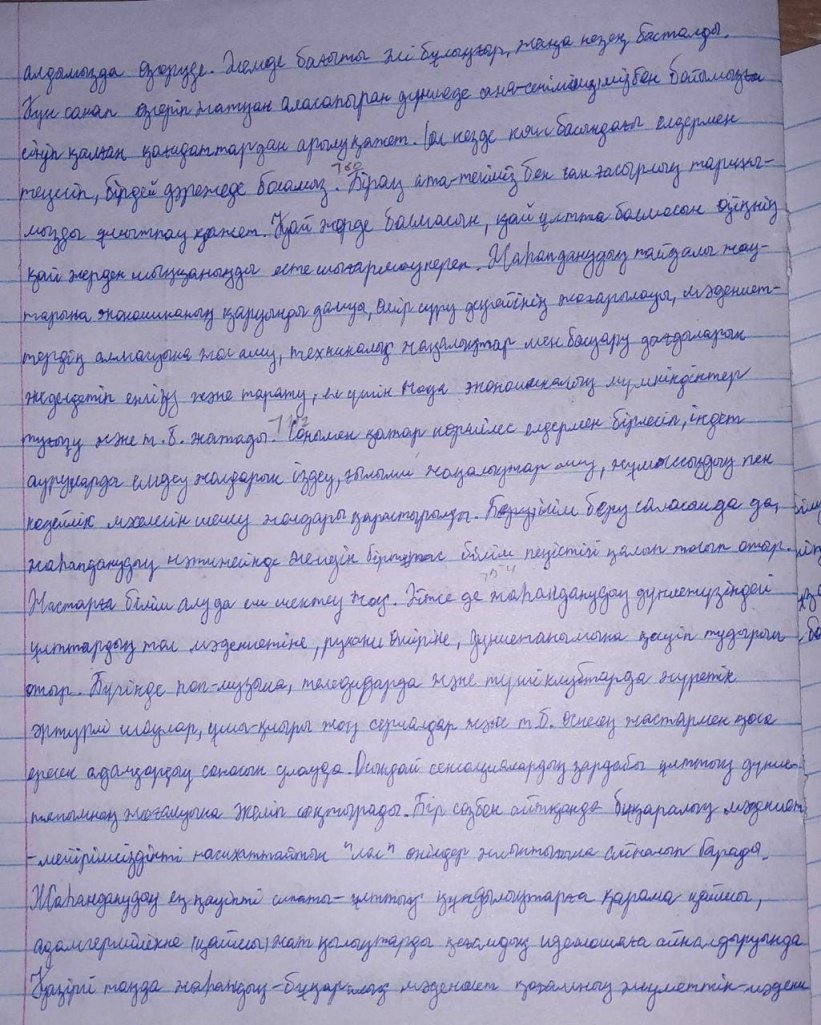 алдамызда өзгеруде. Жөмде бағыты әлі бұлыңғыр, жаңа кезең басталды.
Күн санап өзгеріп жатқан аласапыран дүниеде сана-сенімімізбен бойымызға
сіңіп қалған қағидаттардан арылу қажет. Сол кезде көш басындағы елдермен
теңесіп, бірдей дәрежеде боламыз. Бірақ ата-тегіміз бен сан ғасырлық тарихы-
мызды ұмытпау қажет. Қай жерде болмасын, қай ұлтта болмасын өзіңнің
қай жерден шыққаныңды есте шығармау керек. Жаһанданудың пайдалы жақ-
тарына экономиканың қарқынды дамуы, өмір сүру деңгейінің жоғарылауы, мәдениет-
тердің алмасуына жол ашу, техникалық жаңалықтар мен басқару дағдыларын
жеделдетіп енгізу және тарату, ел үшін жаңа экономикалық мүмкіндіктер
туғызу және т.б. жатады. Сонымен қатар көршілес елдермен бірлесіп, індет
ауруларды емдеу жолдарын іздеу, ғылыми жаңалықтар ашу, жұмыссыздық пен
кедейлік мәселесін шешу жолдары қарастырылды. білім беру саласында да,
жаһанданудың нәтижесінде әлемдік біртұтас білім кеңістігі қалыптасып отыр.
Жастарға білім алуда еш шектеу жоқ. Әйтсе де жаһандануда дүниежүзіндегі
ұлттардың төл мәдениетіне, рухани өміріне, дүниетанымына қауіп тудырып
отыр. Бүгінде поп-музыка, теледидарда және түнгі клубтарда жүретін
әртүрлі шоулар, ұшы-қиыры жоқ сериалдар және т.б. өскелең жастармен қоса
ересек адамдардың санасын улауда. Осындай сенсациялардың зардабы ұлттық дүние-
танымның жоғалуына әкеліп соқтырады. Бір сөзбен айтқанда бұқаралық мәдениет
-мейірімсіздікті насихаттайтын "лас" өнімдер жиынтығына айналып барады.
Жаһанданудың ең қауіпті сипаты-ұлттық құндылықтарға қарама қайшы,
адамгершілікке (қайшы) жат қылықтарды қоғамдық идеологияға айналдыруында
Қазіргі таңда жаһандық-бұқаралық мәдениет қоғамның әлуметтік-мәдени